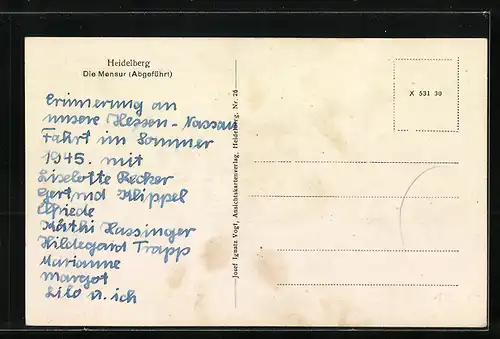 Heidelberg
Die Mensur (Abgeführt)
Erinnerung an
unsere Hessen-Nassau
Fahrt im Sommer
1945. mit
Liselotte Recker
Gertrud Klippel
Elfriede
Käthi Hassinger
Hildegard Trapp
Marianne
Margot
Lilo u. ich
Josef Ignatz Vogt, Ansichtskartenverlag, Heidelberg. Nr. 26
X 531 30